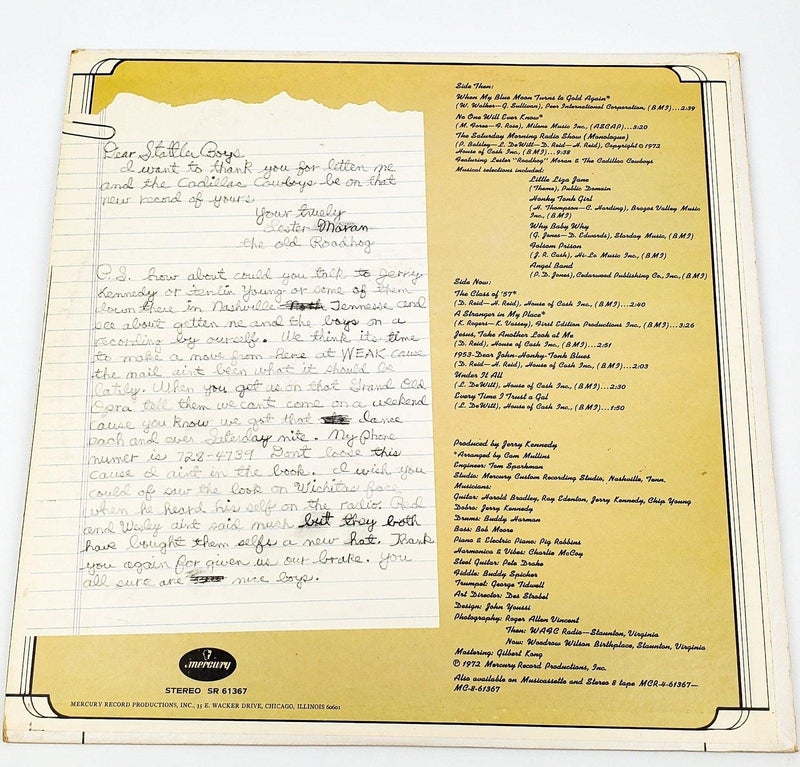 Dear Stattler Boys,
I want to thank you for litten me
and the Cadillac Cowboys be on that
new record of yours.
Your truely
Lester Moran
the old Roadhog
P.S. how about could you talk to Jerry
Kennedy or Ferlin Young or some of them
down there in Nashville Tennesse and
see about getten me and the boys on a
recording by ourself. We think its time
to make a move from here at WEAK cause
the mail aint been what it should be
latily. When you get us on that Grand Old
Opra tell them we cant come on a weekend
cause you know we got that dance
each and ever Saterday nite. My phone
numer is 728-4739 Dont loose this
cause it aint in the book. I wish you
could of saw the look on Wichitas face
when he heard his self on the radio. Red
and Wesley aint said much but they both
have bought them selfs a new hat. Thank
you again for given us our brake. You
all sure are nice boys.
mercury
STEREO SR 61367
MERCURY RECORD PRODUCTIONS, INC., 35 E. WACKER DRIVE, CHICAGO, ILLINOIS 60601
Side Then:
When My Blue Moon Turns to Gold Again*
(W. Walker—G. Sullivan), Peer International Corporation, (BMI)...2:39
No One Will Ever Know*
(M. Foree—F. Rose), Milene Music Inc., (ASCAP)...3:20
The Saturday Morning Radio Show (Monologue)
(P. Balsley—L. DeWitt—D. Reid—H. Reid), Copyright © 1972
House of Cash Inc., (BMI)...9:38
Featuring Lester "Roadhog" Moran & The Cadillac Cowboys
Musical selections included:
Little Liza Jane
(Theme), Public Domain
Honky Tonk Girl
(H. Thompson—C. Harding), Brazos Valley Music
Inc., (BMI)
Why Baby Why
(G. Jones—D. Edwards), Starday Music, (BMI)
Folsom Prison
(J. R. Cash), Hi-Lo Music Inc., (BMI)
Angel Band
(P.D. Jones), Cedarwood Publishing Co., Inc., (BMI)
Side Now:
The Class of '57*
(D. Reid—H. Reid), House of Cash Inc., (BMI)...2:40
A Stranger in My Place*
(K. Rogers—K. Vassey), First Edition Productions Inc., (BMI)...3:26
Jesus, Take Another Look at Me
(D. Reid), House of Cash Inc., (BMI)...2:51
1953-Dear John-Honky-Tonk Blues
(D. Reid—H. Reid), House of Cash Inc., (BMI)...2:03
Under It All
(L. DeWitt), House of Cash Inc., (BMI)...2:30
Every Time I Trust a Gal
(L. DeWitt), House of Cash Inc., (BMI)...1:50
Produced by Jerry Kennedy
*Arranged by Cam Mullins
Engineer: Tom Sparkman
Studio: Mercury Custom Recording Studio, Nashville, Tenn.
Musicians:
Guitar: Harold Bradley, Ray Edenton, Jerry Kennedy, Chip Young
Dobro: Jerry Kennedy
Drums: Buddy Harman
Bass: Bob Moore
Piano & Electric Piano: Pig Robbins
Harmonica & Vibes: Charlie McCoy
Steel Guitar: Pete Drake
Fiddle: Buddy Spicher
Trumpet: George Tidwell
Art Director: Des Strobel
Design: John Youssi
Photography: Roger Allen Vincent
Then: WAFC Radio—Staunton, Virginia
Now: Woodrow Wilson Birthplace, Staunton, Virginia
Mastering: Gilbert Kong
℗ 1972 Mercury Record Productions, Inc.
Also available on Musicassette and Stereo 8 tape MCR-4-61367—
MC-8-61367